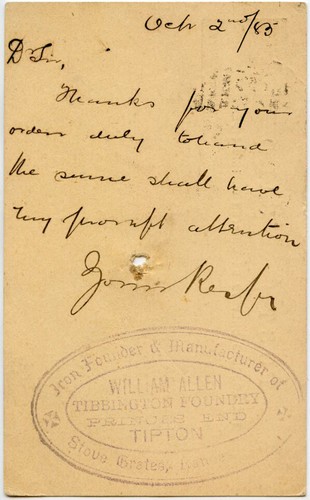 Oct 2nd/85
Dr Sir,
Thanks for your
order duly to hand
the same shall have
my prompt attention
Yours Resp
Iron Founder & Manufacturer of
WILLIAM ALLEN
TIBBINGTON FOUNDRY
PRINCES END
TIPTON
Stove Grates,